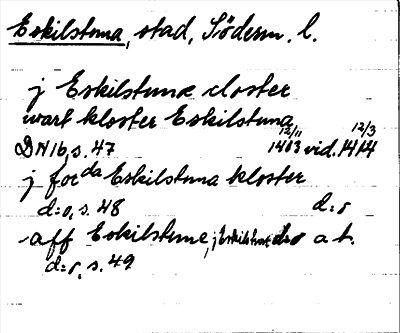 Eskilstuna, stad, Söderm. l.
j Eskilstunæ closter
wart kloster Eskilstuna
DN 16, s. 47 12/11 1403 vid. 12/3 1414
j for da Eskilstuna kloster
d:o, s. 48 d:o
aff Eskilstune, j Eskilstune d:o a b.
d:o, s. 49